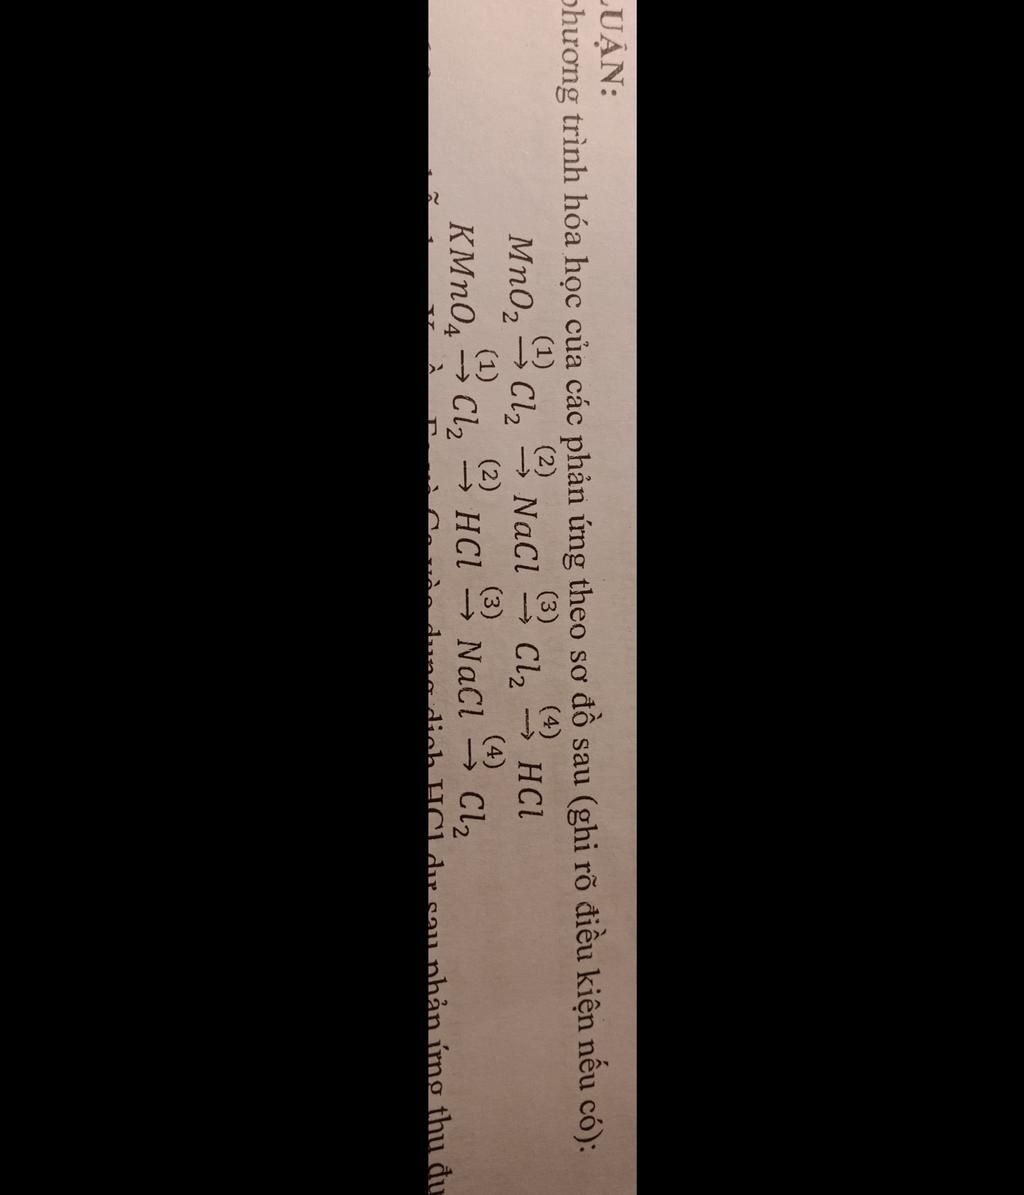 LUẬN:
phương trình hóa học của các phản ứng theo sơ đồ sau (ghi rõ điều kiện nếu có):
MnO₂ →(1) Cl₂ →(2) NaCl →(3) Cl₂ →(4) HCl
KMnO₄ →(1) Cl₂ →(2) HCl →(3) NaCl →(4) Cl₂
dung dịch HCl dư sau phản ứng thu